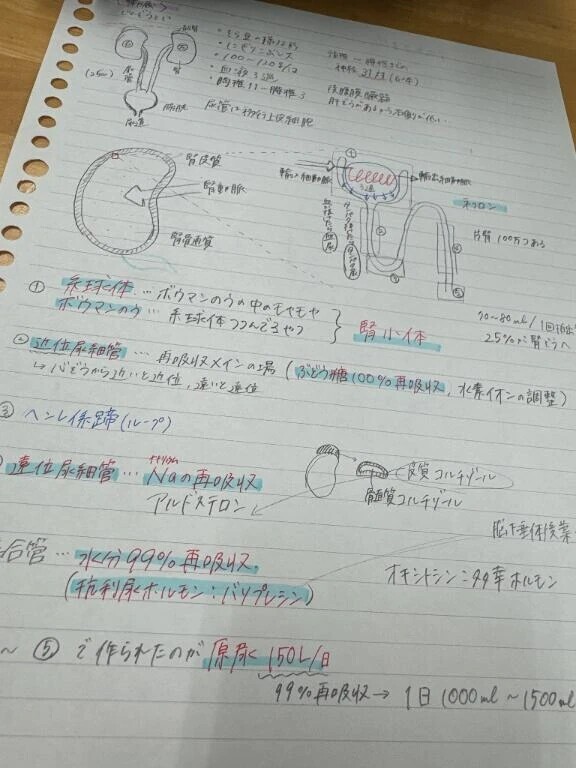 腎
尿管
(25cm)
膀胱
尿道
・そら豆
・にぎりこぶし大
・100〜120g/コ
・胸椎11〜腰椎3
尿管は移行上皮細胞
後腹膜臓器
腎皮質
腎動脈
腎髄質
①
輸入細動脈
輸出細動脈
ネフロン
片腎100万コある
②
③
④
⑤
① 糸球体…ボウマンのうの中のモヤモヤ
ボウマンのう…糸球体つつんでるやつ
腎小体
70〜80ml/1回拍出
25%が腎ぞうへ
② 近位尿細管…再吸収メインの場(ぶどう糖100%再吸収, 水素イオンの調整)
↳心ぞうから近いと近位, 遠いと遠位
③ ヘンレ係蹄(ループ)
遠位尿細管…Naの再吸収
ナトリウム
アルドステロン
皮質コルチゾール
髄質コルチゾール
合管…水分99%再吸収
(抗利尿ホルモン:バソプレシン)
脳下垂体後葉
オキシトシン:幸ホルモン
〜⑤で作られたのが原尿150L/日
99%再吸収→1日1000ml〜1500ml